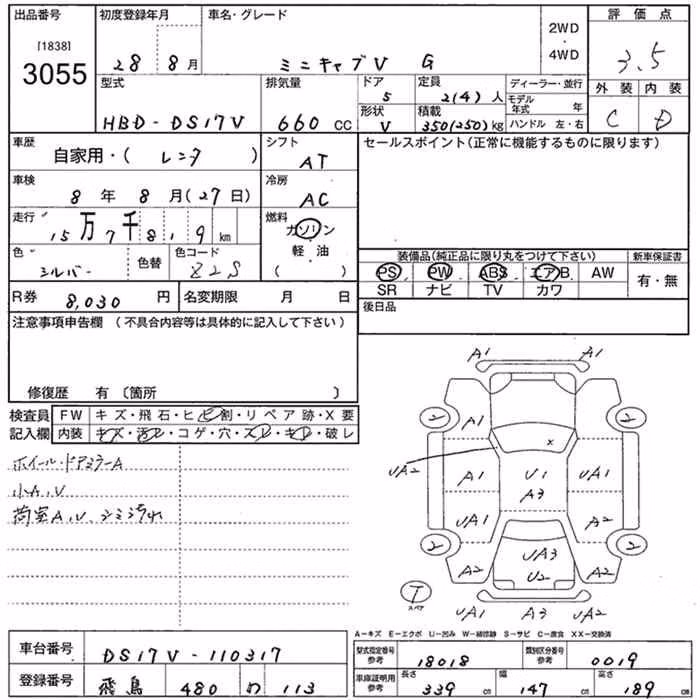 出品番号
[1838]
3055
初度登録年月
28 8月
車名・グレード
ミニキャブV G
2WD
・
4WD
評価点
3.5
外装 内装
C D
型式
HBD-DS17V
排気量
660 CC
ドア
5
形状
V
定員
2(4)人
積載
350(250)kg
ディーラー・並行
モデル年式 年
ハンドル 左・右
車歴
自家用・( レンタ )
シフト
AT
セールスポイント(正常に機能するものに限ります)
車検
8年8月(27日)
冷房
AC
走行
15万7千819km
燃料
ガソリン
軽油
( )
色
シルバー
色替
色コード
装備品(純正品に限り丸をつけて下さい)
新車保証書
PS PW ABS エアB. AW
SR ナビ TV カワ
有・無
R券 8,030円
名変期限 月 日
後日品
注意事項申告欄(不具合内容等は具体的に記入して下さい)
修復歴 有〔箇所 〕
検査員
記入欄
FW キズ・飛石・ヒビ割・リペア跡・X要
内装 キズ・汚レ・コゲ・穴・スレ・キレ・破レ
ホイール・ドアミラーA
小A.V
荷室A.V、シミ汚れ
A1 A1
2 2
A1
UA2
A1 U1 UA1
A3
UA1 A2
2 2
UA3
A2 U2 A2
T
スペア
UA1 A3 UA2
A-キズ E-エクボ U-凹み W-補修跡 S-サビ C-腐食 XX-交換済
車台番号
DS17V-110317
登録番号
飛鳥 480 わ 113
型式指定番号
参考
18018
類別区分番号
参考
0019
車庫証明用
参考
長さ 339 cm
幅 147 cm
高さ 189 cm